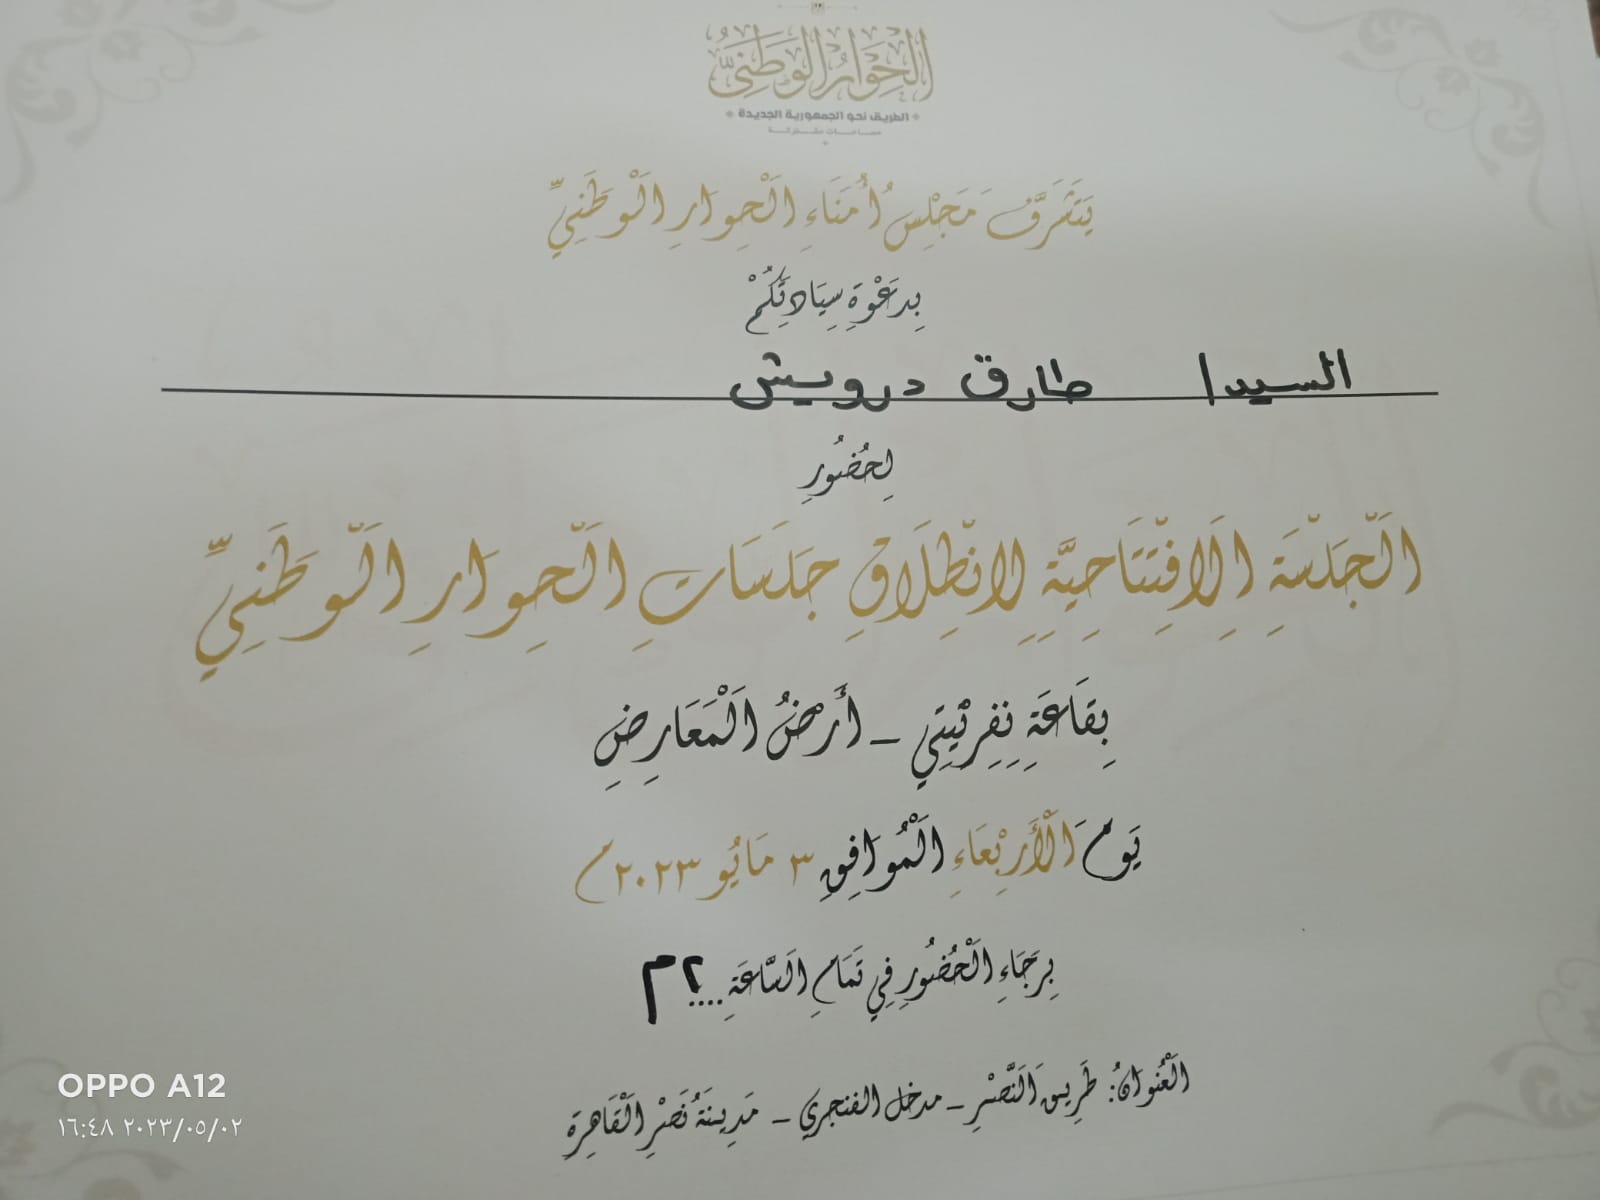 الحوار الوطني
الطريق نحو الجمهورية الجديدة
مساحات مشتركة
يَتَشَرَّفُ مَجْلِسُ أُمَنَاءِ الْحِوَارِ الْوَطَنِيِّ
بِدَعْوَةِ سِيَادَتِكُمْ
السيد/ طارق درويش
لِحُضُورِ
الْجَلْسَةِ الِافْتِتَاحِيَّةِ لِانْطِلَاقِ جَلَسَاتِ الْحِوَارِ الْوَطَنِيِّ
بِقَاعَةِ نِفِرْتِيتِي - أَرْضُ الْمَعَارِضِ
يَومَ الْأَرْبِعَاءِ الْمُوَافِقِ ٣ مَايُو ٢٠٢٣م
بِرَجَاءِ الْحُضُورِ فِي تَمَامِ السَّاعَةِ .... ٢م
الْعُنْوَانُ: طَرِيقِ النَّصْرِ - مدخل الفنجري - مَدِينَةُ نَصْرِ الْقَاهِرَةِ
OPPO A12
٢٠٢٣/٠٥/٠٢ ١٦:٤٨